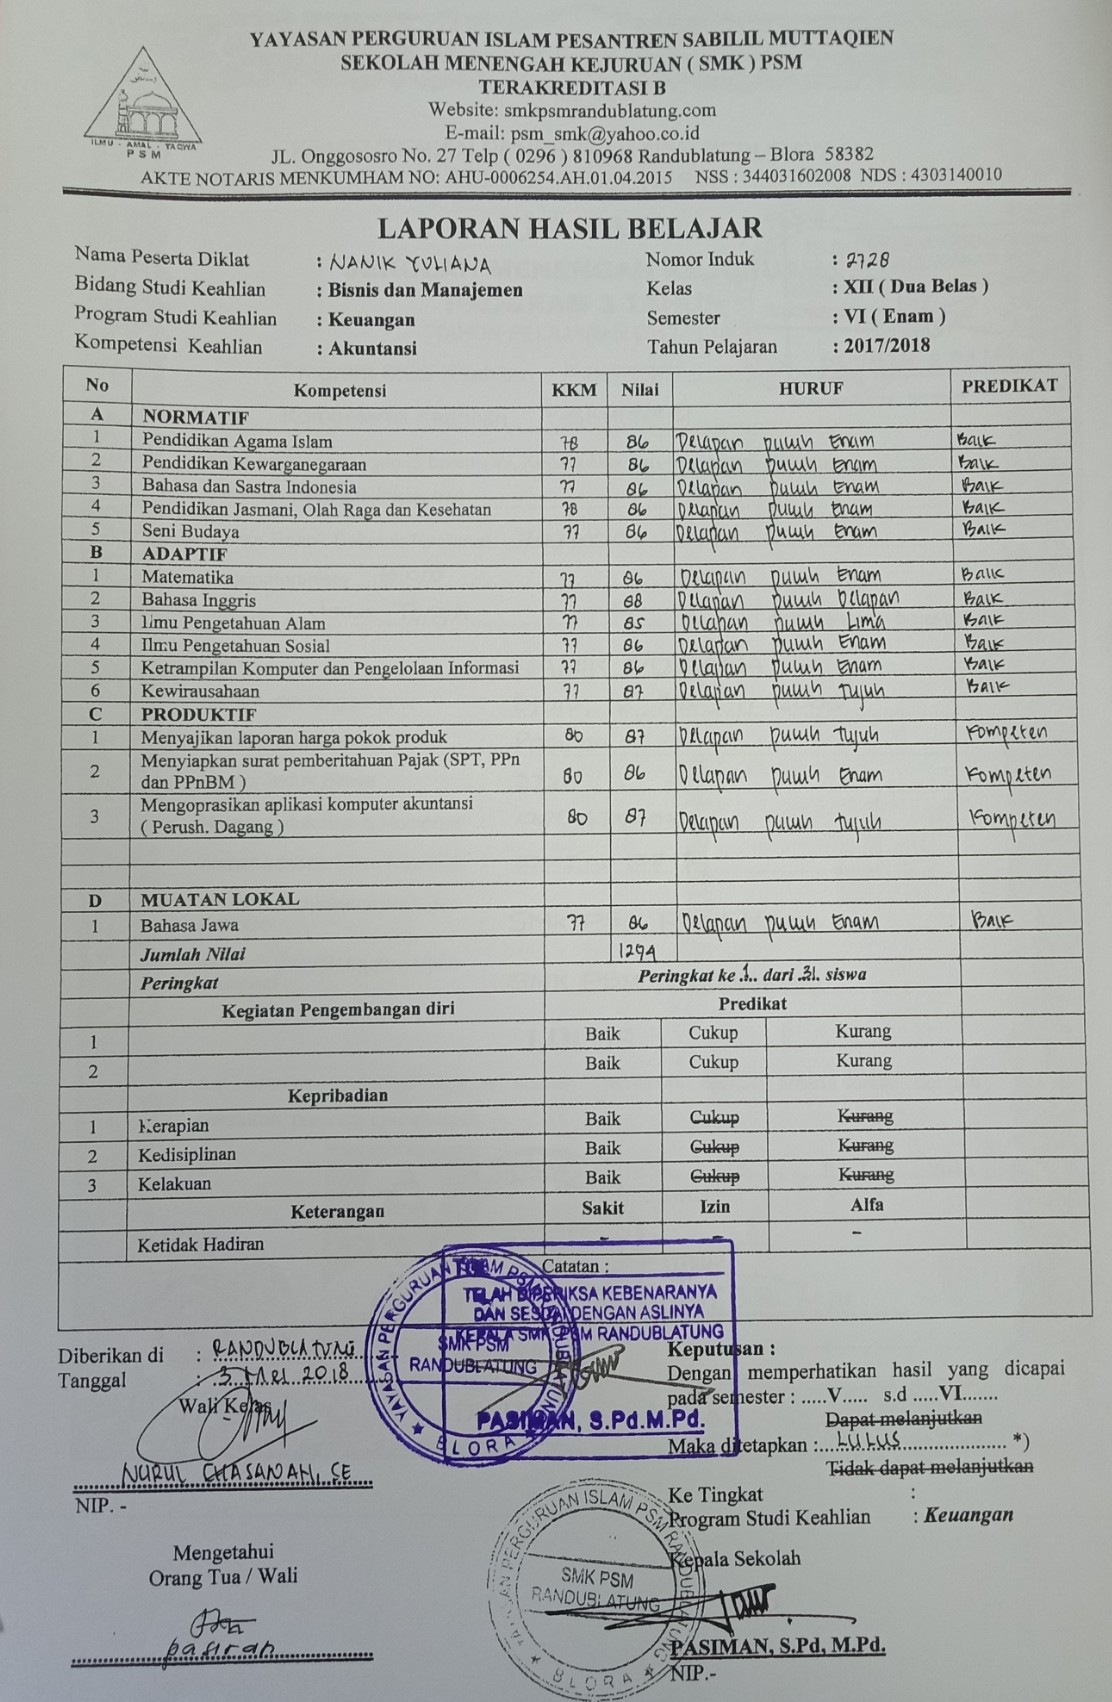 YAYASAN PERGURUAN ISLAM PESANTREN SABILIL MUTTAQIEN
SEKOLAH MENENGAH KEJURUAN ( SMK ) PSM
TERAKREDITASI B
Website: smkpsmrandublatung.com
E-mail: psm_smk@yahoo.co.id
JL. Onggososro No. 27 Telp ( 0296 ) 810968 Randublatung – Blora 58382
AKTE NOTARIS MENKUMHAM NO: AHU-0006254.AH.01.04.2015 NSS : 344031602008 NDS : 4303140010
ILMU - AMAL - TAQWA
PSM
LAPORAN HASIL BELAJAR
Nama Peserta Diklat : NANIK YULIANA Nomor Induk : 2728
Bidang Studi Keahlian : Bisnis dan Manajemen Kelas : XII ( Dua Belas )
Program Studi Keahlian : Keuangan Semester : VI ( Enam )
Kompetensi Keahlian : Akuntansi Tahun Pelajaran : 2017/2018
No Kompetensi KKM Nilai HURUF PREDIKAT
A NORMATIF
1 Pendidikan Agama Islam 78 86 Delapan puluh Enam Baik
2 Pendidikan Kewarganegaraan 77 86 Delapan puluh Enam Baik
3 Bahasa dan Sastra Indonesia 77 86 Delapan puluh Enam Baik
4 Pendidikan Jasmani, Olah Raga dan Kesehatan 78 86 Delapan puluh Enam Baik
5 Seni Budaya 77 86 Delapan puluh Enam Baik
B ADAPTIF
1 Matematika 77 86 Delapan puluh Enam Baik
2 Bahasa Inggris 77 88 Delapan puluh Delapan Baik
3 Ilmu Pengetahuan Alam 77 85 Delapan puluh Lima Baik
4 Ilmu Pengetahuan Sosial 77 86 Delapan puluh Enam Baik
5 Ketrampilan Komputer dan Pengelolaan Informasi 77 86 Delapan puluh Enam Baik
6 Kewirausahaan 77 87 Delapan puluh tujuh Baik
C PRODUKTIF
1 Menyajikan laporan harga pokok produk 80 87 Delapan puluh tujuh Kompeten
2 Menyiapkan surat pemberitahuan Pajak (SPT, PPn
dan PPnBM ) 80 86 Delapan puluh Enam Kompeten
3 Mengoprasikan aplikasi komputer akuntansi
( Perush. Dagang ) 80 87 Delapan puluh tujuh Kompeten
D MUATAN LOKAL
1 Bahasa Jawa 77 86 Delapan puluh Enam Baik
Jumlah Nilai 1294
Peringkat Peringkat ke .1.. dari .31. siswa
Kegiatan Pengembangan diri Predikat
1 Baik Cukup Kurang
2 Baik Cukup Kurang
Kepribadian
1 Kerapian Baik Cukup Kurang
2 Kedisiplinan Baik Cukup Kurang
3 Kelakuan Baik Cukup Kurang
Keterangan Sakit Izin Alfa
Ketidak Hadiran - - -
Catatan :
TELAH DIPERIKSA KEBENARANYA
DAN SESUAI DENGAN ASLINYA
KEPALA SMK PSM RANDUBLATUNG
PASIMAN, S.Pd.M.Pd.
YAYASAN PERGURUAN ISLAM PSM RANDUBLATUNG
SMK PSM
RANDUBLATUNG
★ BLORA ★
Diberikan di : RANDUBLATUNG
Tanggal : 3 Mei 2018
Wali Kelas
NURUL CHASANAH, SE
NIP. -
Mengetahui
Orang Tua / Wali
pasiran
Keputusan :
Dengan memperhatikan hasil yang dicapai
pada semester : .....V..... s.d .....VI.......
Dapat melanjutkan
Maka ditetapkan :...LULUS...................... *)
Tidak dapat melanjutkan
Ke Tingkat :
Program Studi Keahlian : Keuangan
Kepala Sekolah
YAYASAN PERGURUAN ISLAM PSM RANDUBLATUNG
SMK PSM
RANDUBLATUNG
★ BLORA ★
PASIMAN, S.Pd, M.Pd.
NIP.-